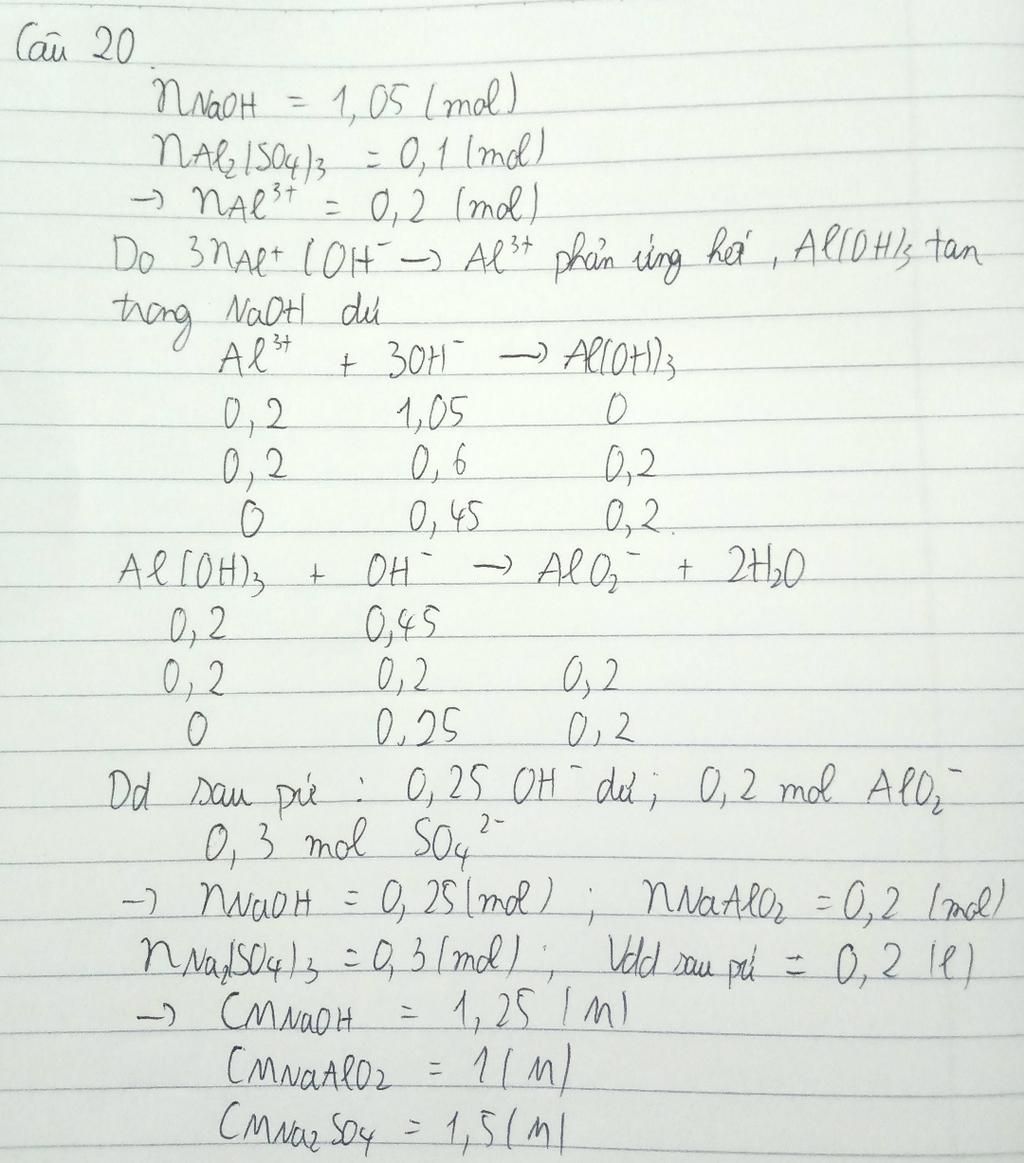 Câu 20
nNaOH = 1,05 (mol)
nAl₂(SO₄)₃ = 0,1 (mol)
→ nAl³⁺ = 0,2 (mol)
Do 3nAl⁺ ( OH⁻ → Al³⁺ phản ứng hết, Al(OH)₃ tan
trong NaOH dư
Al³⁺ + 3OH⁻ → Al(OH)₃
0,2 1,05 0
0,2 0,6 0,2
0 0,45 0,2
Al(OH)₃ + OH⁻ → AlO₂⁻ + 2H₂O
0,2 0,45
0,2 0,2 0,2
0 0,25 0,2
Dd sau pứ : 0,25 OH⁻ dư; 0,2 mol AlO₂⁻
0,3 mol SO₄²⁻
→ nNaOH = 0,25 (mol) ; nNaAlO₂ = 0,2 (mol)
nNa₂(SO₄)₃ = 0,3 (mol) ; Vdd sau pứ = 0,2 (l)
→ CMNaOH = 1,25 (M)
CMNaAlO₂ = 1 (M)
CMNa₂SO₄ = 1,5 (M)